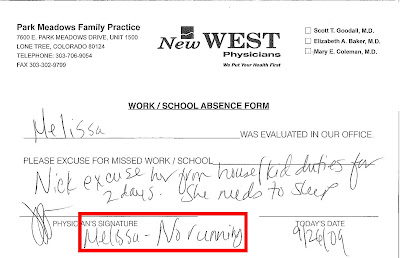 Park Meadows Family Practice
7600 E. PARK MEADOWS DRIVE, UNIT 1500
LONE TREE, COLORADO 80124
TELEPHONE: 303-706-9054
FAX 303-302-9799
New WEST
Physicians
We Put Your Health First
Scott T. Goodall, M.D.
Elizabeth A. Baker, M.D.
Mary E. Coleman, M.D.
WORK / SCHOOL ABSENCE FORM
Melissa WAS EVALUATED IN OUR OFFICE.
PLEASE EXCUSE FOR MISSED WORK / SCHOOL
Nick excuse her from house/kid duties for
2 days. She needs to sleep
PHYSICIAN'S SIGNATURE
TODAY'S DATE
Melissa - No running
9/26/09